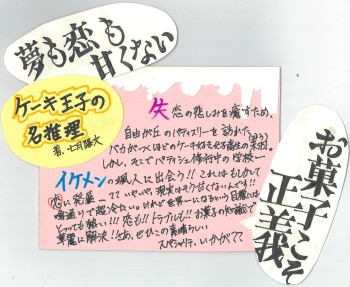 夢も恋も
甘くない
ケーキ王子の
名推理
著、七月隆文
失恋の悲しみを癒すため、
自由が丘のパティスリーを訪れた
バカがつくほどのケーキ好き女子高生の未羽。
しかし、そこでパティシエ修行中の学校一
イケメンの楓人に出会う!!これはもしかして
恋に発展…っていやいや、現実はそう甘くないんです!!
噂通りで超冷たい。けれど世界一になるという目標には
とっても熱い!!!恋も!!トラブルも!!お菓子の知識で
華麗に解決!!さあ、ぜひこの素晴らしい
スペシャリテ、いかが??
お菓子こそ
正義